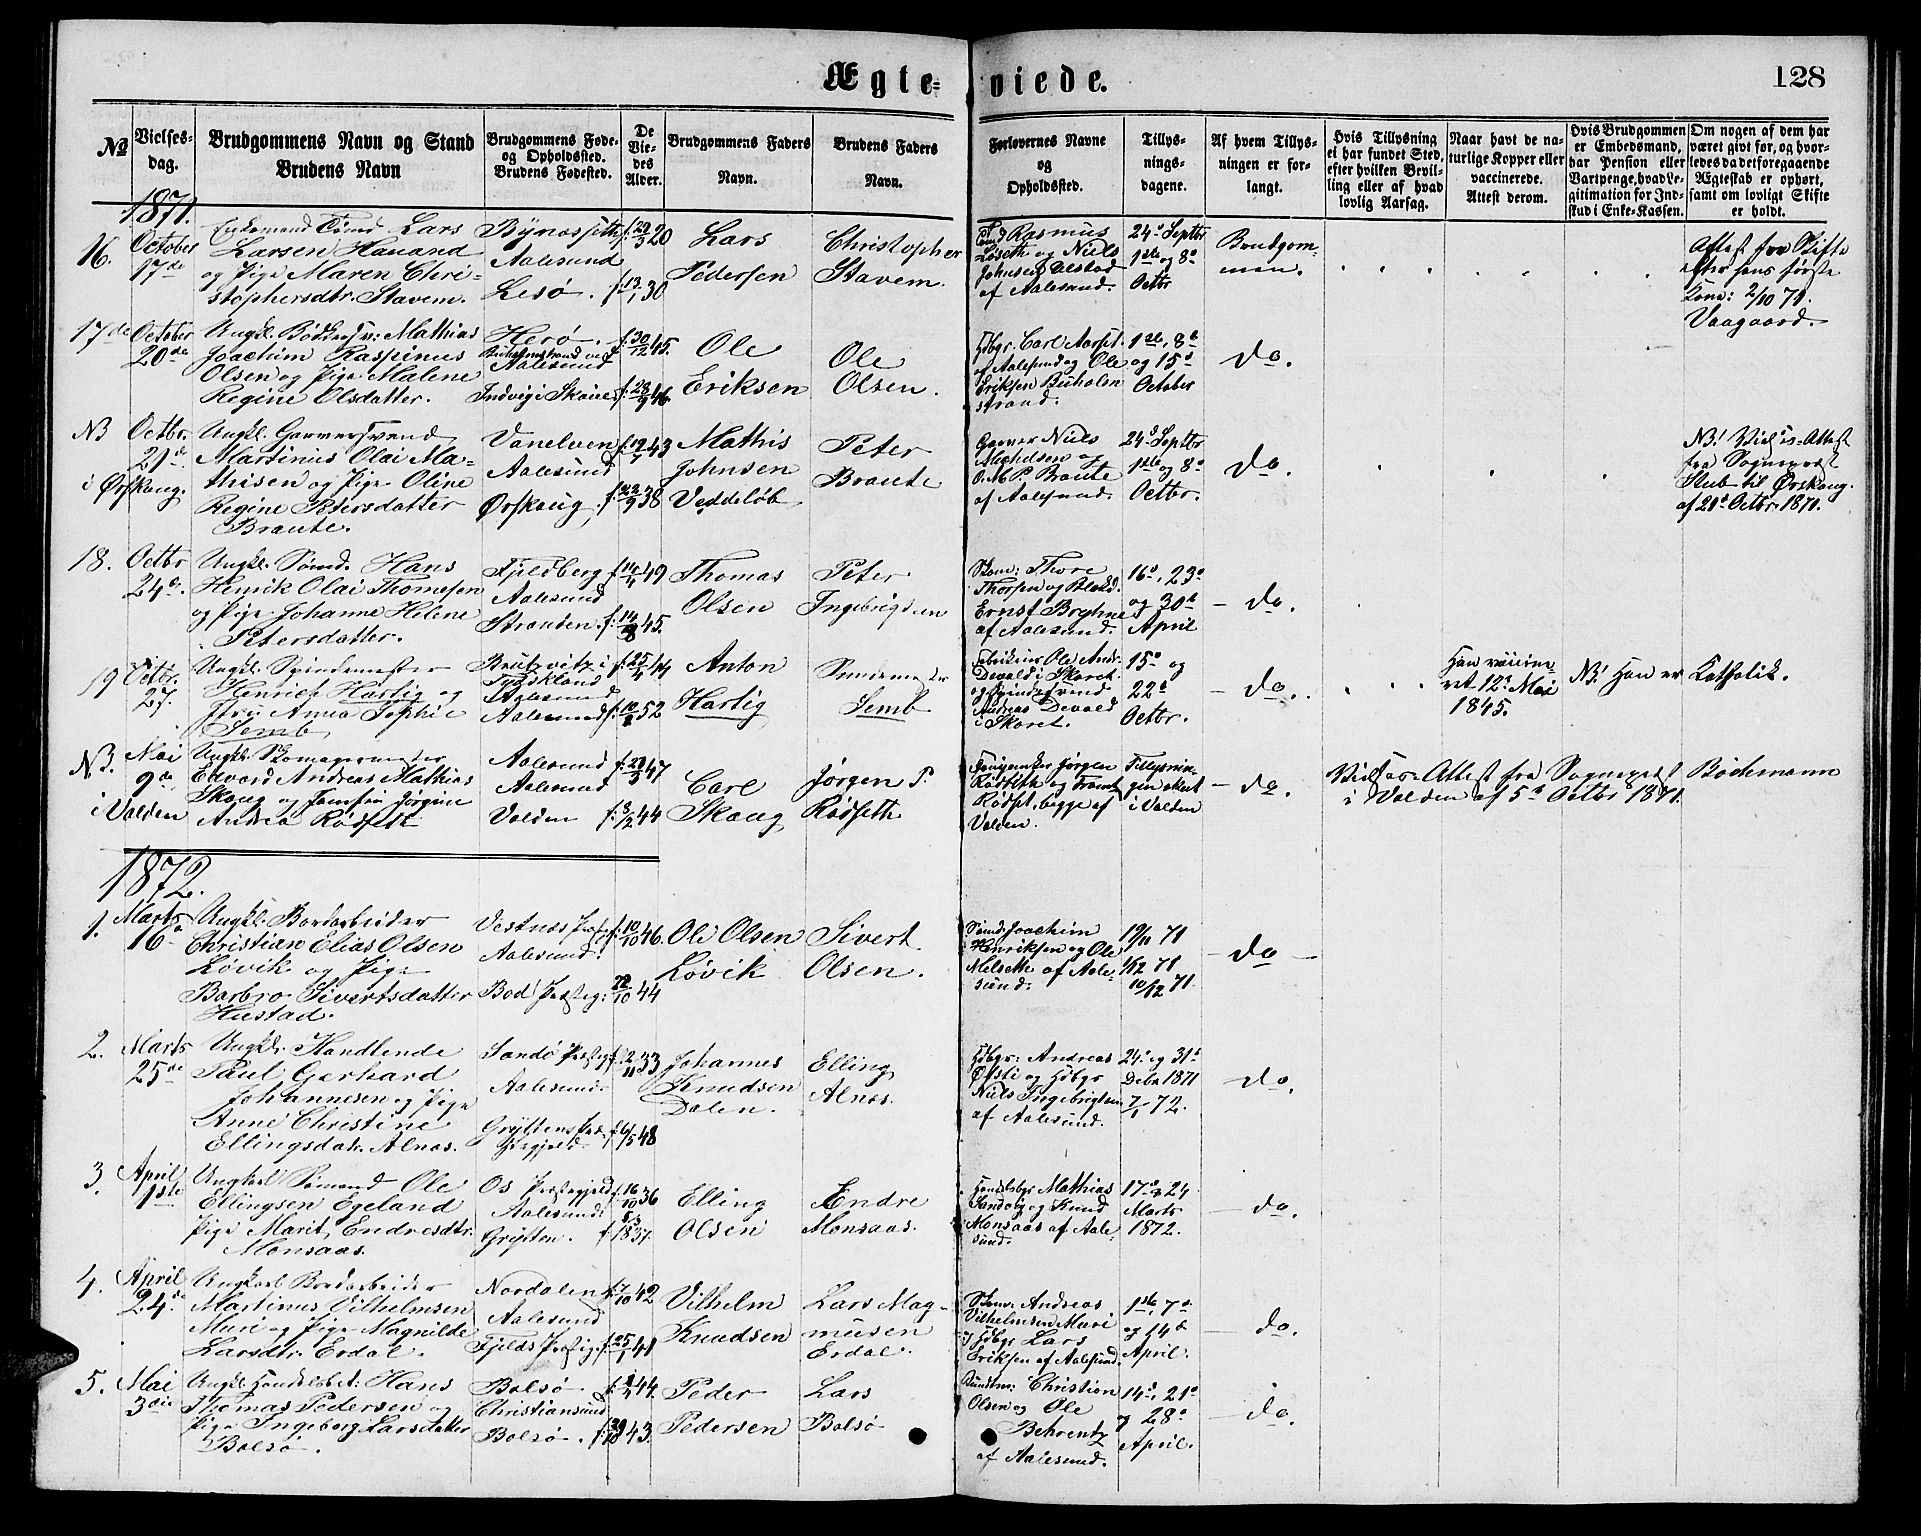 Ægte-viede.
128
No
Vielses-dag.
Brudgommens Navn og Stand
Brudens Navn
Brudgommens Føde- og Opholdssted.
Brudens Fødested.
De Viedes Alder.
Brudgommens Faders Navn.
Brudens Faders Navn.
Forlovernes Navne og Opholdssted.
Tillysnings-dagene.
Af hvem Tillysningen er forlangt.
Hvis Tillysning ei har fundet Sted, efter hvilken Bevilling eller af hvad lovlig Aarsag.
Naar havt de naturlige Kopper eller vaccinerede. Attest derom.
Hvis Brudgommen er Embedsmand, har Pension eller Vartpenge, hvad Legitimation for Indskud i Enke-Kassen.
Om nogen af dem har været givt før, og hvorledes da det foregaaende Ægteskab er ophørt, samt om lovligt Skifte er holdt.
1871.
16.
October
17de
Enkemand Lars
Larsen Hauand
og Pige Maren Chri-
stophersdtr. Stavem.
Aalesund
Lesø.
f. 13/1 30
Lars
Pedersen
Christopher
Stavem.
Rasmus
og Niels
Johnsen
af Aalesund.
24de Septbr
1ste og 8de
Octbr
Brudgom-
men.
Attest fra Skifte
efter hans første
Kone: 2/10 71.
Vaagaard.
17de
October
20de
Ungkl. Mathias
Joachim Raspinus
Olsen og Pige Malene
Regine Olsdatter.
Herø.
Aalesund
f. 30/12 45.
f. 28/9 46.
Ole
Eriksen
Ole
Olsen.
Hdbgr. Carl
af Aalesund og Ole
Eriksen Buholm
strand.
1ste, 8de
og 15de
October
do.
NB
Octbr.
21de
i Ørskoug.
Ungkl. Garversvend
Martinus Olai Ma-
thisen og Pige Oline
Regine Petersdatter
Braute.
Vanelven
Aalesund
Ørskoug,
f. 19/7 43
f. 22/9 38
Mathis
Johnsen
Veddeløb
Peter
Braute
Garver Niels
og
O. M. P. Braute
af Aalesund.
24de Septbr
1ste og 8de
Octbr.
do.
NB! Vielses-Attest
fra Sogneprest
Stub til Ørskoug.
af 21de Octbr. 1871.
18.
Octbr
24de
Ungkl. Sømd. Hans
Henrik Olai Thomesen
og Pige Johanne Helene
Petersdatter.
Fjeldberg
Aalesund
Stranden.
f. 14/8 45.
Thomas
Olsen
Peter
Ingebrigtsen
Skom: Thore
Thorsen og
Ernst Bryhne
af Aalesund.
16de, 23de
og 30te
April
do.
19
Octbr.
27.
Ungkl. Spindemester
Henrich Hartig og
Anna Sophie
Semb
i
Tydskland
Aalesund
Aalesund
f. 25/4 44
52
Anton
Hartig
Semb
Fabrikeier Ole Andr.
Devold i Skoret
og
Andreas Devold
i Skoret.
15de og
22de
Octbr.
do.
Han
ret 12te Mai
1845.
NB! Han er Katholik.
NB.
Mai
9de
i Volden
Ungkl. Skomagermester
Edvard Andreas Mathias
Skoug og Jomfru Jørgine
Andrea Rødseth
Aalesund
Aalesund
Volden
47
f. 3/2 44
Carl
Skoug
Jørgen P.
Rødseth
Jørgen
Rødseth og
Rødset, begge af
Volden.
Tillysnin-
gen skeet
i Volden
do.
Vielses-Attest fra Sogneprest Böchmann
i Volden af 5te Octbr 1871.
1872.
1.
Marts
16de
Ungkl. Bordarbeider
Christian Elias Olsen
Løvik og Pige
Barbro Sivertsdatter
Hustad.
Vestnæs
Aalesund.
Bod Præsteg:
f. 10/10 46.
22/10 44
Ole Olsen
Løvik
Sivert
Olsen.
Sømd. Joachim
Henriksen og Ole
Melseth af Aale-
sund.
19/11 71
1/12 71
10/12 71.
do
2.
Marts
25de
Ungkl. Handlende
Paul Gerhard
Johannesen og Pige
Anne Christine
Ellingsdatr. Alnæs.
Sandø Præsteg
Aalesund.
Gryttens Præ-
stegjeld.
f. 2/11 33
f. 6/5 48
Johannes
Knudsen
Dalen.
Elling
Alnæs.
Hdbgr: Andreas
Ørsti og Hdbgr
Niels Ingebrigtsen
af Aalesund.
24de og 31te
Debr 1871
7/1 72.
do.
3.
April
1ste
Ungkarl Sømand Ole
Ellingsen Egeland
Pige Marit Endresdtr.
Monsaas.
Os Præstegjeld
Aalesund
Grytten.
f. 16/10 36
Elling
Olsen
Endre
Monsaas.
Handelsbgr Mathias
Sandvig og Knud
Monsaas af Aale-
sund.
17de & 24
Marts
1872.
do.
4.
April
24de
Ungkarl Bordarbeider
Martinus Vilhelmsen
Muri og Pige Magnilde
Larsdtr. Erdal.
Nordalen
Aalesund
Fjelds Præsteg.
f. 7/10 42
f. 25/1 41
Vilhelm
Knudsen
Lars Mag-
nusen
Erdal.
Skom: Andreas
Vilhelmsen Muri
og Hdbgr Lars
Eriksen af Aalesund.
1ste, 7de
og 14de
April.
do.
5.
Mai
3die
Ungkl. Handelsbt: Hans
Thomas Pedersen og
Pige Ingeborg Larsdatter
Bolsø.
Bolsø.
Christiansund
Bolsø.
44.
43.
Peder
Pedersen
Lars
Bolsø
Christian
Olsen og Ole
Behrentz
af Aalesund.
14de, 21de
og 28de
April.
do.